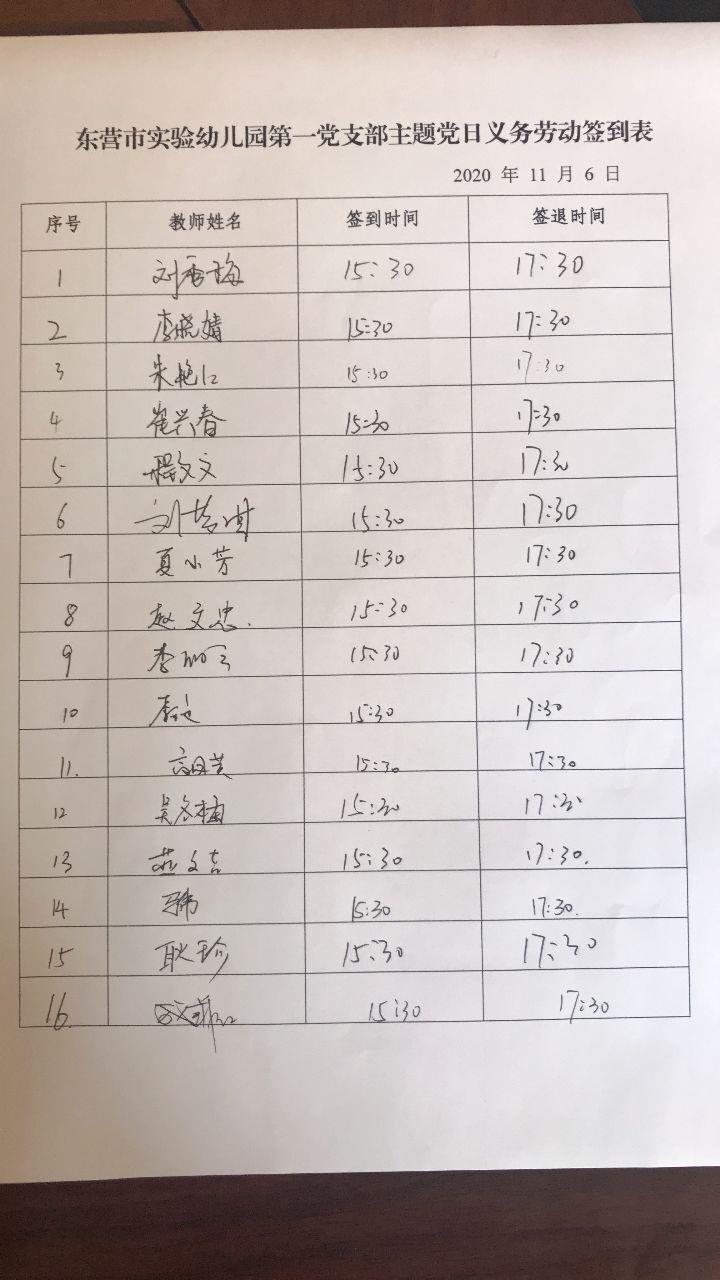 东营市实验幼儿园第一党支部主题党日义务劳动签到表
2020 年 11 月 6 日
序号 教师姓名 签到时间 签退时间
1 刘秀梅 15:30 17:30
2 李晓婧 15:30 17:30
3 朱艳红 15:30 17:30
4 崔兴春 15:30 17:30
5 文 15:30 17:30
6 刘梦琪 15:30 17:30
7 夏小芳 15:30 17:30
8 赵文忠. 15:30 17:30
9 李丽云 15:30 17:30
10 李 15:30 17:30
11. 15:30 17:30
12 吴冬梅 15:30 17:30
13 燕文吉 15:30 17:30.
14 15:30 17:30.
15 耿珍 15:30 17:30
16. 15:30 17:30